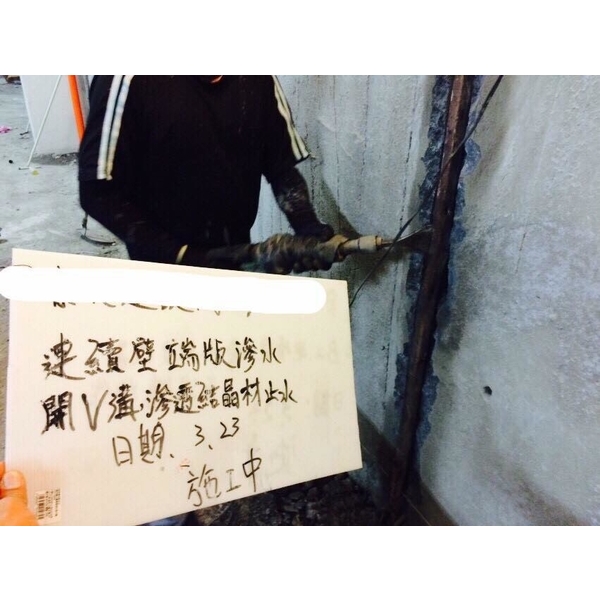 連續壁端版滲水
開V溝,滲透結晶材止水
日期、3、23
施工中